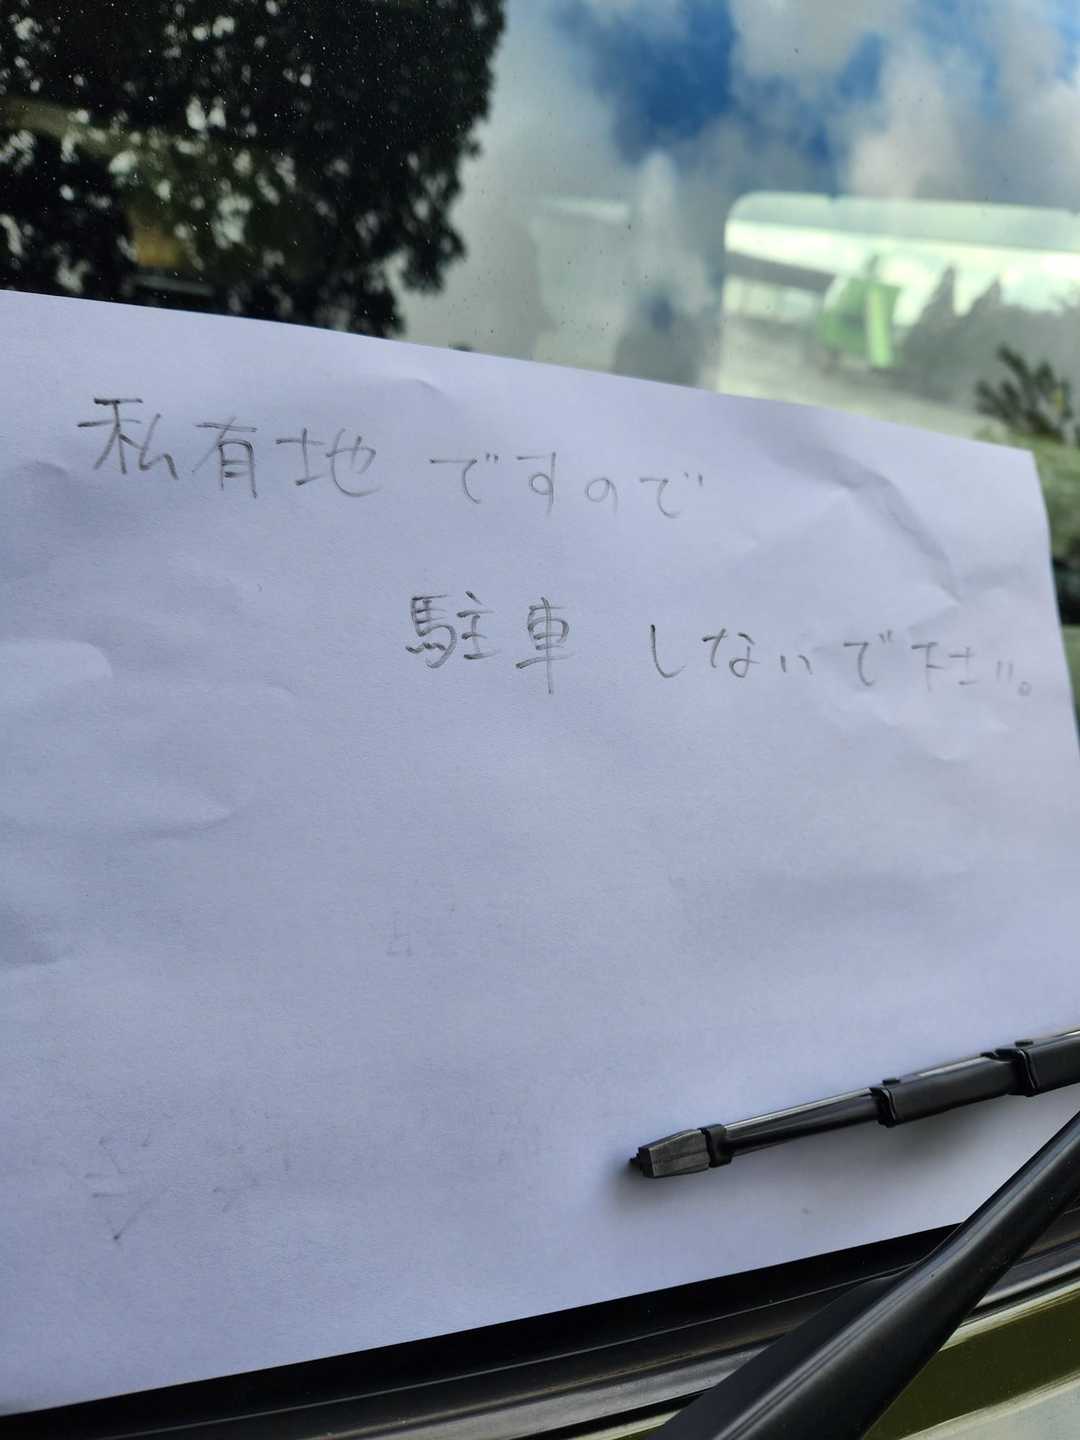 私有地ですので
駐車しないで下さい。